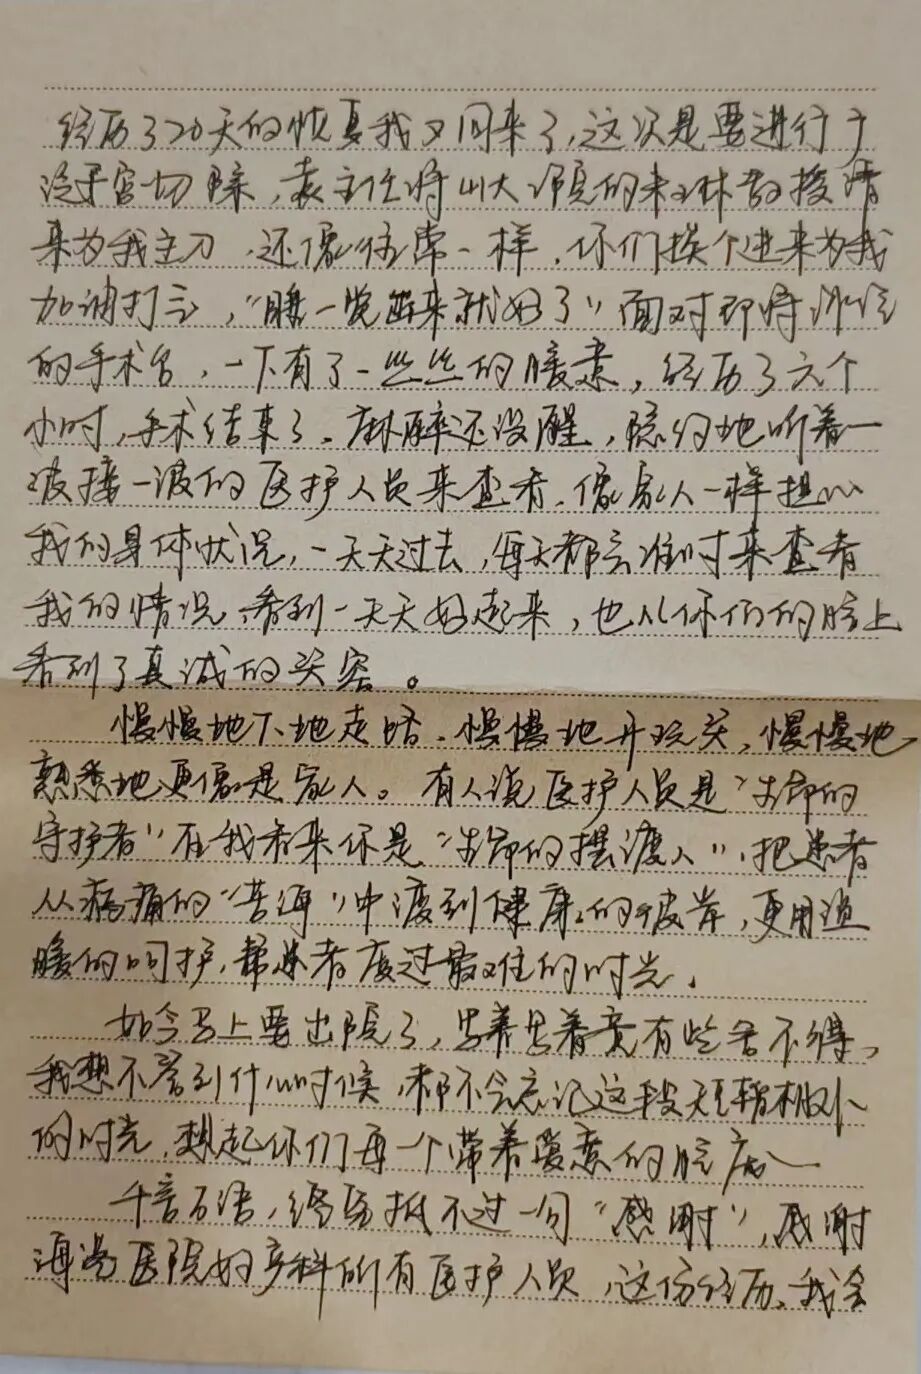 经历了20天的恢复我又回来了,这次是要进行子
宫切除,袁主任将山大 的 教授请
来为我主刀,还像往常一样,你们挨个进来为我
加油打气,“睡一觉出来就好了”面对即将 
的手术台,一下有了一丝丝的暖意,经历了六个
小时,手术结束了。麻醉还没醒,隐约地听着一
波接一波的医护人员来查看,像家人一样担心
我的身体状况,一天天过去,每天都会准时来查看
我的情况,看到一天天好起来,也从你们的脸上
看到了真诚的笑容。
慢慢地下地走路,慢慢地开玩笑,慢慢地
熟悉地更像是家人。有人说医护人员是“生命的
守护者”在我看来你是“生命的摆渡人”,把患者
从病痛的“苦海”中渡到健康的彼岸,更用温
暖的呵护,帮患者度过最难的时光。
如今马上要出院了,想着想着竟有些舍不得,
我想不管到什么时候,都不会忘记这段
的时光,想起你们每一个带着爱意的脸庞~
千言万语,终究抵不过一句“感谢”,感谢
海湾医院妇产科所有医护人员,这份经历,我会